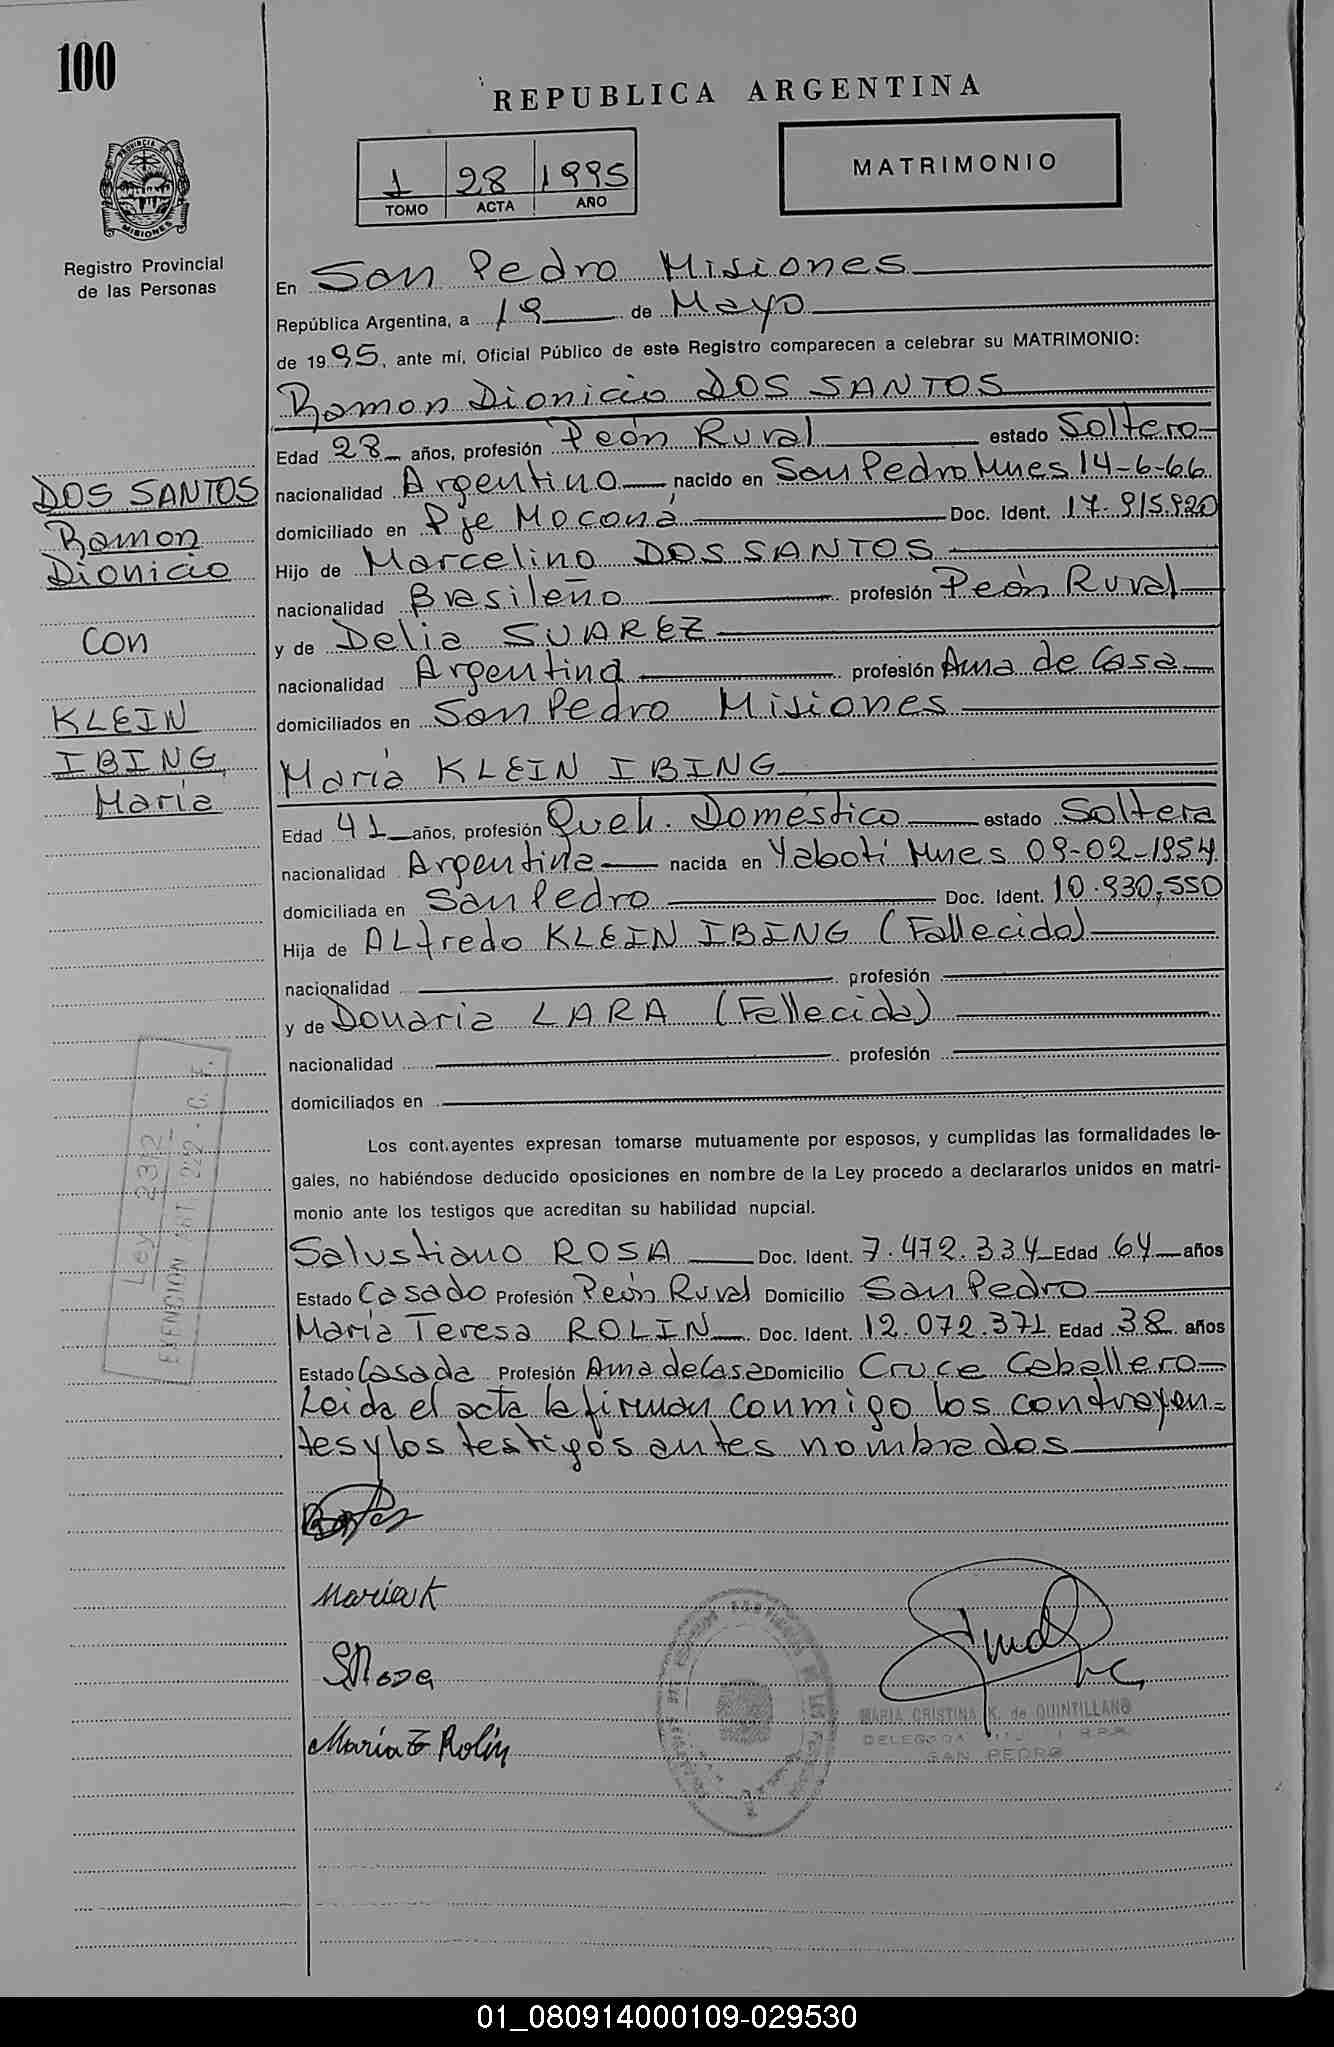 100
REPUBLICA ARGENTINA
1 28 1995
TOMO ACTA AÑO
MATRIMONIO
PROVINCIA DE
MISIONES
Registro Provincial
de las Personas
En San Pedro Misiones
República Argentina, a 19 de Mayo
de 1995, ante mí, Oficial Público de este Registro comparecen a celebrar su MATRIMONIO:
Ramon Dionicio DOS SANTOS
Edad 28 años, profesión Peón Rural estado Soltero
nacionalidad Argentino nacido en San Pedro Mnes 14-6-66.
domiciliado en Pje Moconá Doc. Ident. 17.915.920
Hijo de Marcelino DOS SANTOS
nacionalidad Brasileño profesión Peón Rural
y de Delia SUAREZ
nacionalidad Argentina profesión Ama de Casa
domiciliados en San Pedro Misiones
DOS SANTOS
Ramon
Dionicio
con
KLEIN
IBING,
María
María KLEIN IBING
Edad 41 años, profesión Queh. Doméstico estado Soltera
nacionalidad Argentina nacida en Yaboti Mnes 09-02-1954.
domiciliada en San Pedro Doc. Ident. 10.930.550
Hija de ALfredo KLEIN IBING (Fallecido)
nacionalidad profesión
y de Donaria LARA (Fallecida)
nacionalidad profesión
domiciliados en
Los cont.ayentes expresan tomarse mutuamente por esposos, y cumplidas las formalidades le-
gales, no habiéndose deducido oposiciones en nombre de la Ley procedo a declararlos unidos en matri-
monio ante los testigos que acreditan su habilidad nupcial.
Salustiano ROSA Doc. Ident. 7.472.334 Edad 64 años
Estado Casado Profesión Peón Rural Domicilio San Pedro
María Teresa ROLIN Doc. Ident. 12.072.371 Edad 38 años
Estado Casada Profesión Ama de Casa Domicilio Cruce Caballero
Leida el acta la firman conmigo los contrayen=
tes y los testigos antes nombrados
Ley 2312
EXENCION ART 222 C. F.
Maria K
S Rosa
María T Rolín
MARIA CRISTINA K. de QUINTILLAN
DELEGADA R.P.P.
SAN PEDRO
01_080914000109-029530